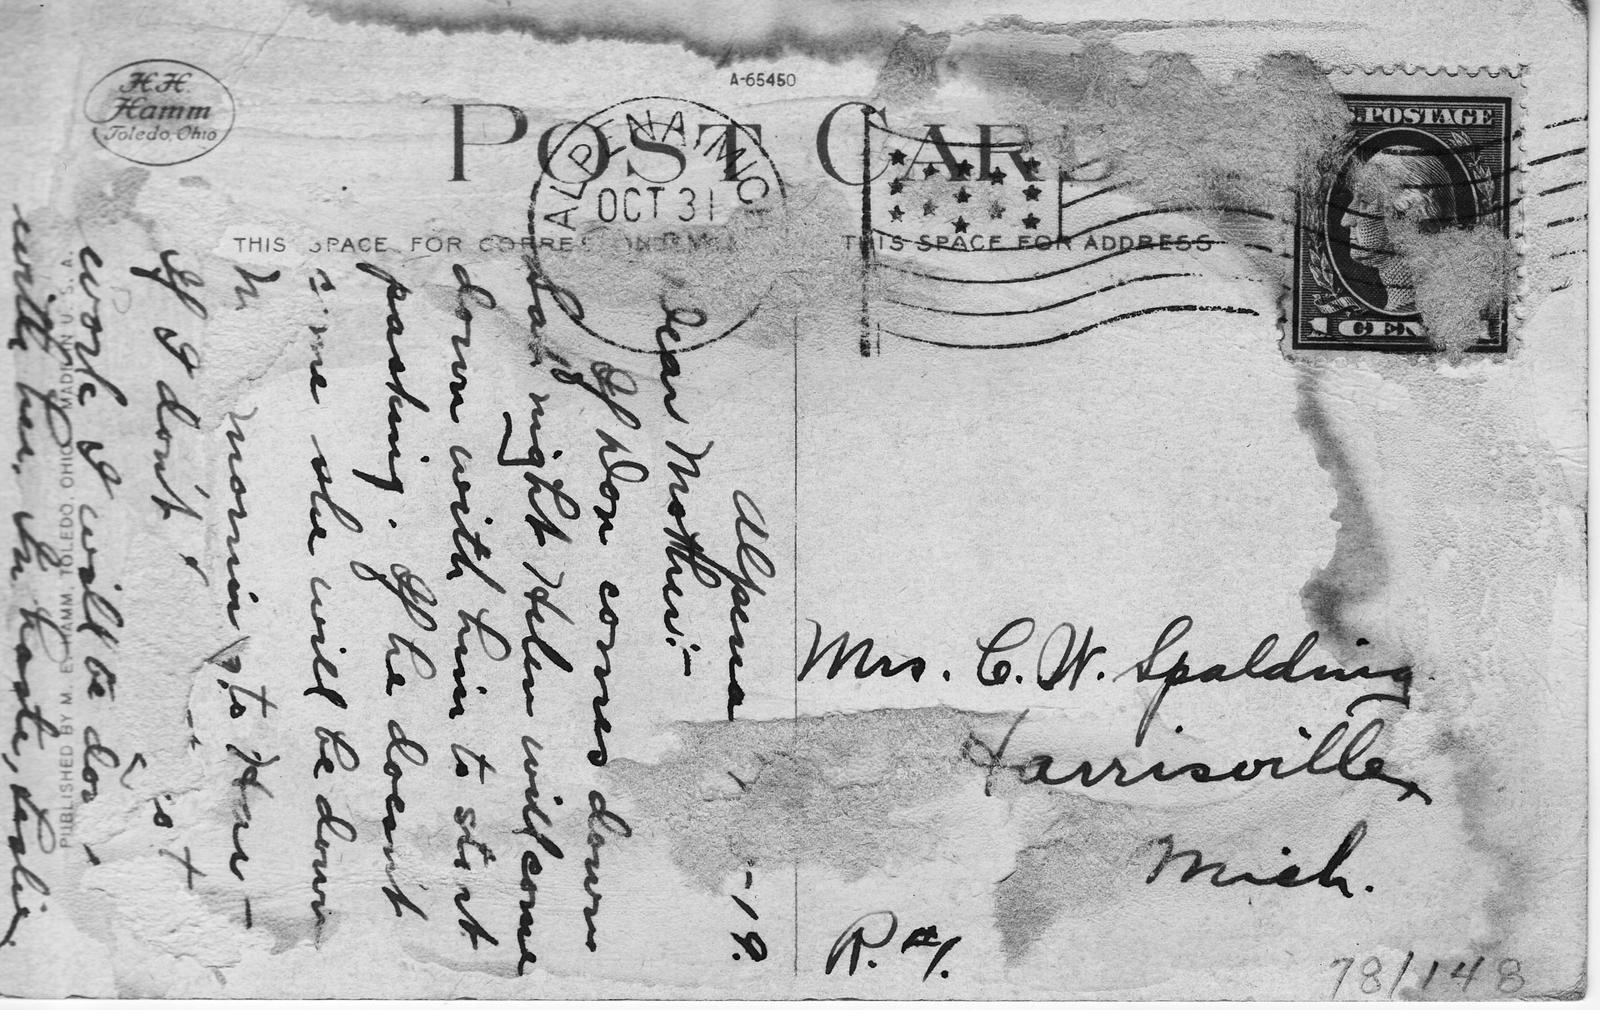 H.H.
Hamm
Toledo, Ohio
A-65450
POST CARD
ALPENA, MICH
OCT 31
THIS SPACE FOR CORRESPONDENCE
THIS SPACE FOR ADDRESS
U.S. POSTAGE
1 CENT 1
PUBLISHED BY M. E. HAMM, TOLEDO, OHIO. MADE IN U. S. A.
Alpena
-19.
Dear Mother:-
If Don comes down
night Helen will come
down with him to start
packing. If he doesn't
come she will be down
morning to Harr-
If I don't
is t
work I will be down
with her. In haste, Leslie
Mrs. C. W. Spalding
Harrisville,
Mich.
R. #1.
78/148